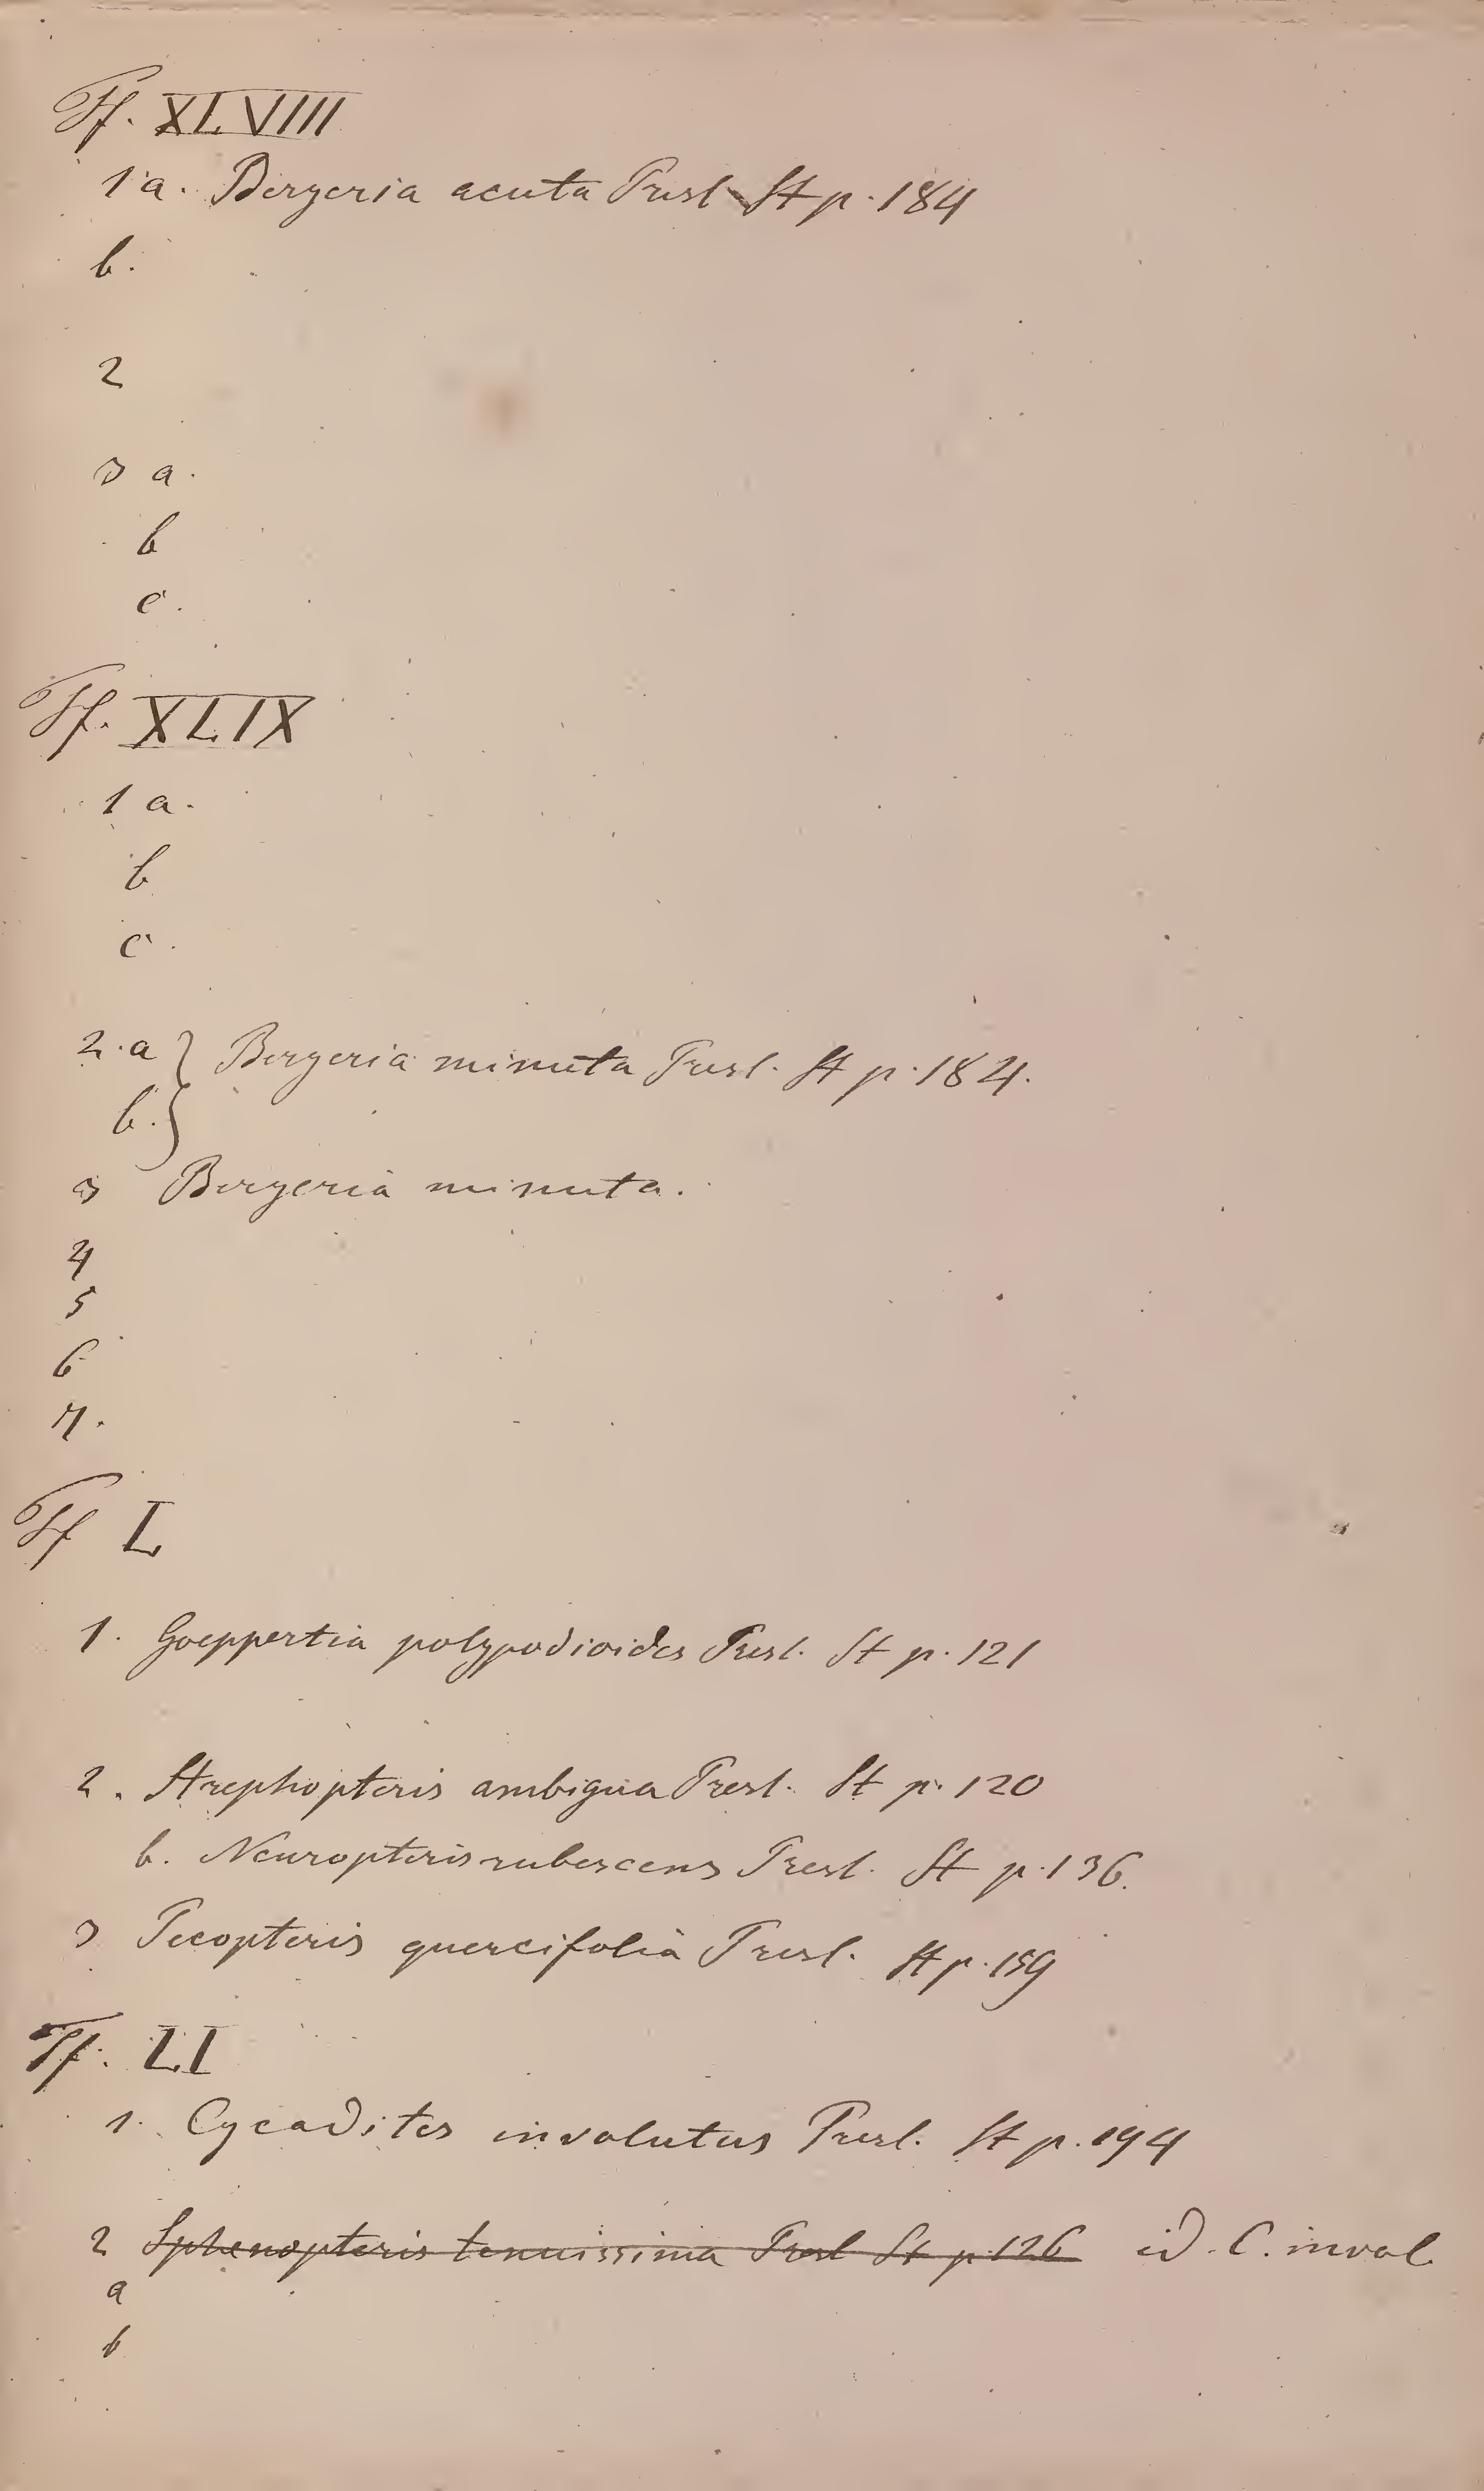 Tf. XLVIII
1 a. Bergeria acuta Presl St p. 184
b.
2
3 a.
b
c.
Tf. XLIX
1 a.
b
c.
2. a } Bergeria minuta Presl. St p. 184.
b. }
3 Bergeria minuta.
4
5
6
7.
Tf L
1. Goeppertia polypodioides Presl. St p. 121
2. Strephopteris ambigua Presl. St p. 120
b. Neuropteris rubescens Presl. St p. 136.
3 Pecopteris quercifolia Presl. St p. 159
Tf. LI
1. Cycadites involutus Presl. St p. 194
2 Sphenopteris tenuissima Presl St p 126 id. C. invol.
a
b